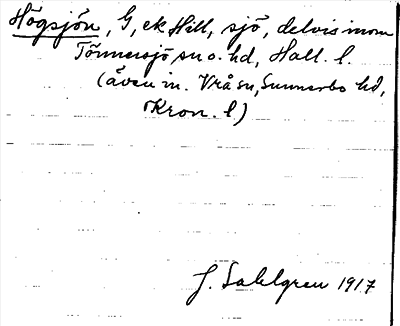 Högsjön, G, ek Hill, sjö, delvis inom
Tönnersjö sn o. hd, Hall. l.
(även in. Vrå sn, Sunnerbo hd,
Kron. l)
J. Sahlgren 1917